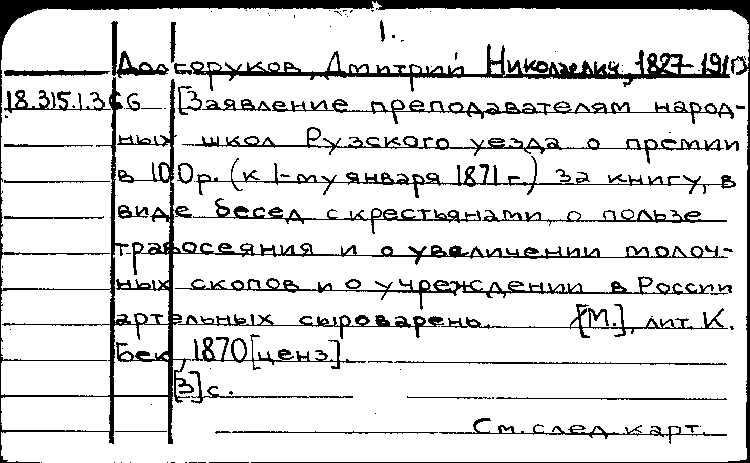 1.
Долгоруков, Дмитрий Николаевич, 1827-1910
18.315.1.366 [Заявление преподавателям народ-
ных школ Рузского уезда о премии
в 100р. (к 1-му января 1871 г.) за книгу, в
виде бесед с крестьянами, о пользе
травосеяния и о увеличении молоч-
ных скопов и о учреждении в России
артельных сыроварень. [М.], лит. К.
Бек, 1870 [ценз].
[3] с.
См. след. карт.